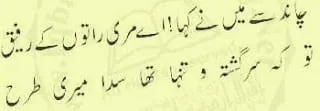 چاند سے میں نے کہا! اے مری راتوں کے رفیق
تو کہ سرگشتہ و تنہا تھا سدا میری طرح